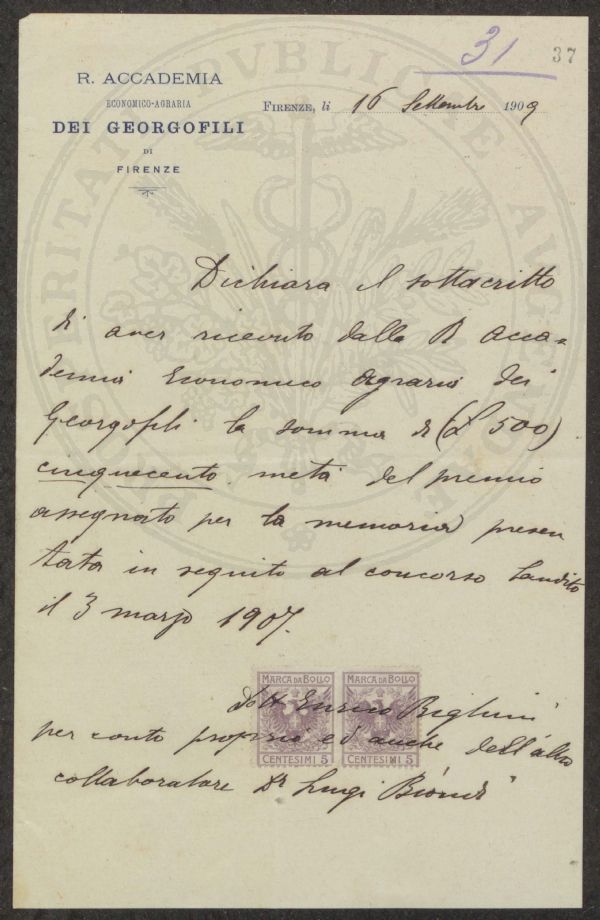 31
37
R. ACCADEMIA
ECONOMICO-AGRARIA
DEI GEORGOFILI
DI
FIRENZE
FIRENZE, li 16 Settembre 1909
Dichiara il sottoscritto
di aver ricevuto dalla R Acca=
demia Economico Agraria dei
Georgofili la somma di (L 500)
cinquecento metà del premio
assegnato per la memoria presen
tata in seguito al concorso bandito
il 3 marzo 1907.
MARCA DA BOLLO MARCA DA BOLLO
dott Enrico
per conto proprio ed anche dell'altro
CENTESIMI 5 CENTESIMI 5
collaboratore Dr Luigi Biondi
PROSPERITATI PVBLICAE AVGENDAE